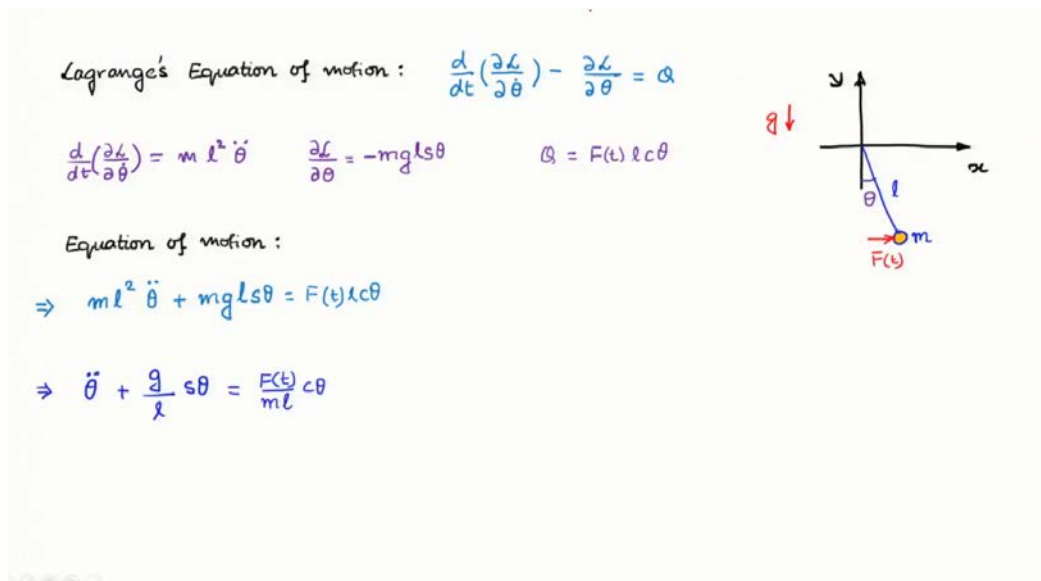 Lagrange's Equation of motion : d/dt(∂ℒ/∂θ̇) − ∂ℒ/∂θ = Q
d/dt(∂ℒ/∂θ̇) = m l² θ̈    ∂ℒ/∂θ = −mglsθ    Q = F(t) lcθ
Equation of motion :
⇒ ml² θ̈ + mglsθ = F(t)lcθ
⇒ θ̈ + g/l sθ = F(t)/ml cθ
y
g↓
x
θ
l
m
F(t)